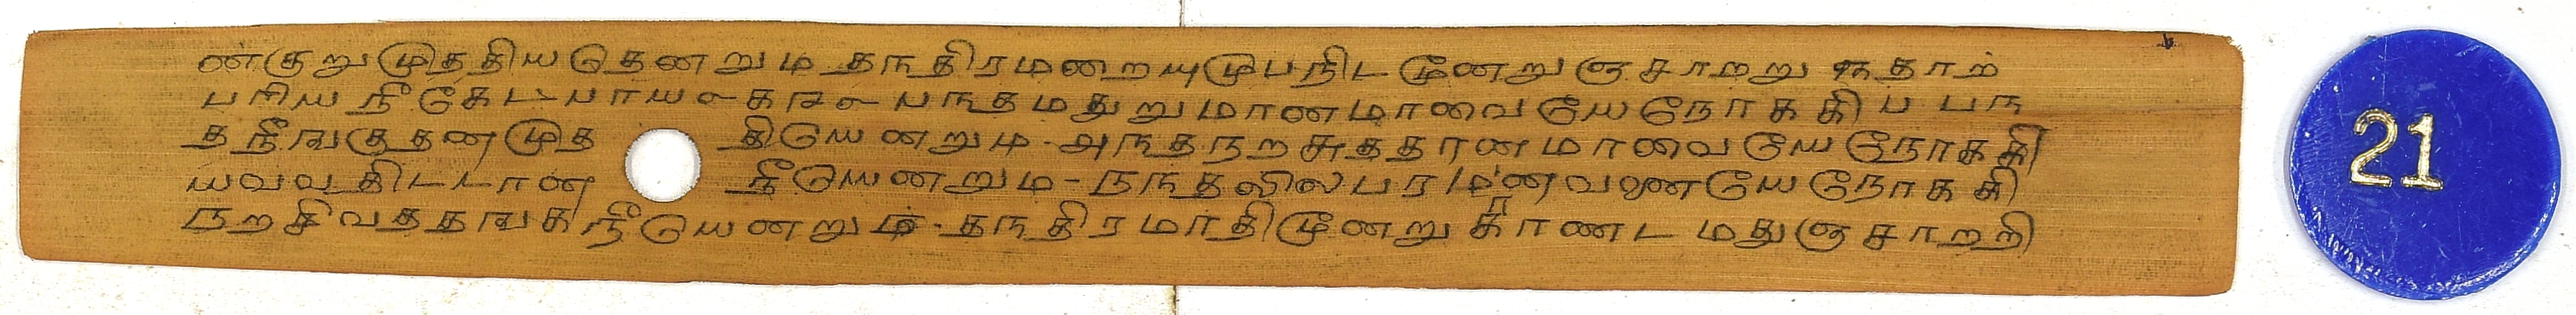 ண்குறுமுததியதெனறும தநதிரமறையுமுபநிடமூனறுஞசாறறு தோற
பரிய நீகேடபாய பநதமதுறுமானமாவையேநோககி ப பந
தநீஙகுதனமுத தியெனறும - அநதநறசுததரனமாவையேநோககி
யவவதிடடான நீயெனறும - நநதலிலபர வணையேநோககி
நறசிவததஙகநீயெனறும - தநதிரமாதிமூனறு காணடமதுஞசாறறி
21